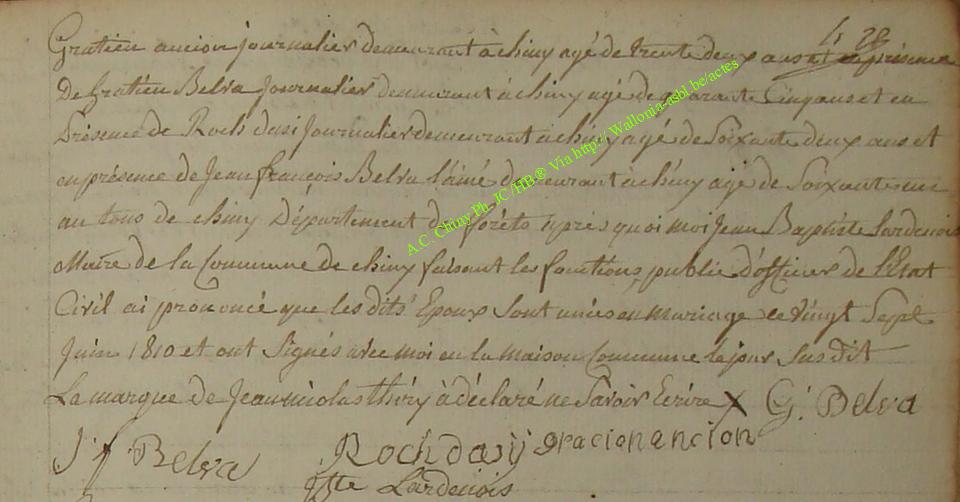 h 28
Gratien ancion journalier demeurant à chiny agé de trente deux ans et en présence
De Gratien Belva Journalier demeurant à chiny agé de quarante Cinq ans et en
Présence de Roch dasi Journalier demeurant à chiny agé de Soixante deux ans et
en présence de Jean françois Belva l'ainé demeurant à chiny agé de Soixante un
an tous de chiny Département des forêts après quoi moi Jean Baptiste Lardenois
Maire de la Commune de chiny faisant les fonctions public d'officier de l'Etat
Civil ai prononcé que les dits Epoux Sont unies en Mariage ce vingt Sept
Juin 1810 et ont Signés avec moi en la maison Commune le jour Sus dit
La marque de Jean nicolas thiry à déclaré ne Savoir Ecrire X G. Belva
J f Belva Roch dasij gracion ancion
Bte Lardenois
A.C. Chiny Ph. JC /HB@ Via http:// Wallonia-asbl.be/actes